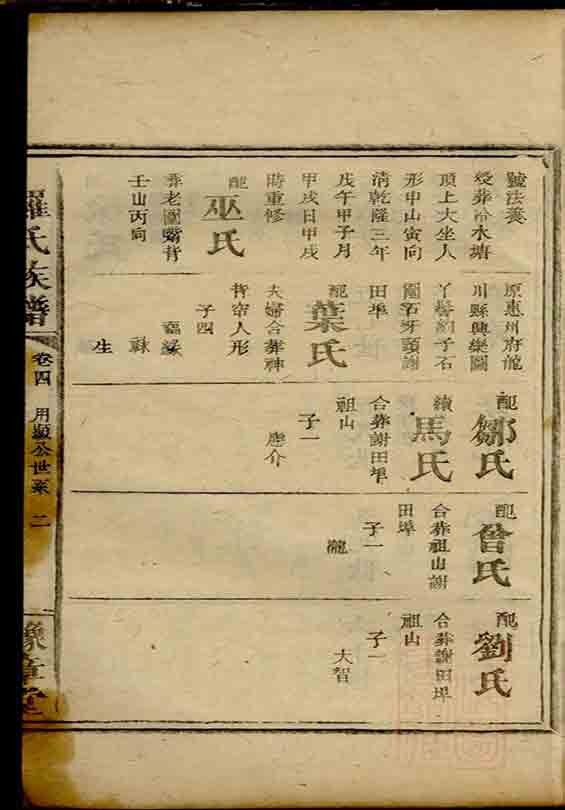 號法養
受葬冷水塘
頂上大坐人
形申山寅向
清乾隆三年
戊午甲子月
甲戌日甲戌
時重修
配
巫氏
葬老圍嘴背
壬山丙向
原惠州府龍
川縣興樂圖
丫髻約子石
圍石牙頭謝
田埠
配
葉氏
夫婦合葬神
背帘人形
子四
生
配
鄒氏
續
馬氏
合葬謝田埠
祖山
子一
應介
配
曾氏
合葬祖山謝
田埠
子一
瀧
配
劉氏
合葬謝田埠
祖山
子一
大智
羅氏族譜
卷四
用顯公世系
二
豫章堂